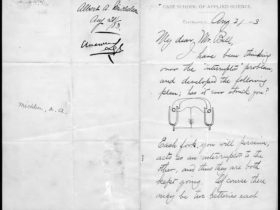 Albert A. Michelson
Aug 21/83
Answered
Michelson, A. A.
CASE SCHOOL OF APPLIED SCIENCE,
Aug 21 83
My dear Mr. Bell,
I have been thinking
over the "interrupter" problem,
and developed the following
plan; how does it strike you?
Each fork, you will perceive,
acts as an interrupter to the
other, and thus they are both
kept going. Of course there
may be two batteries each